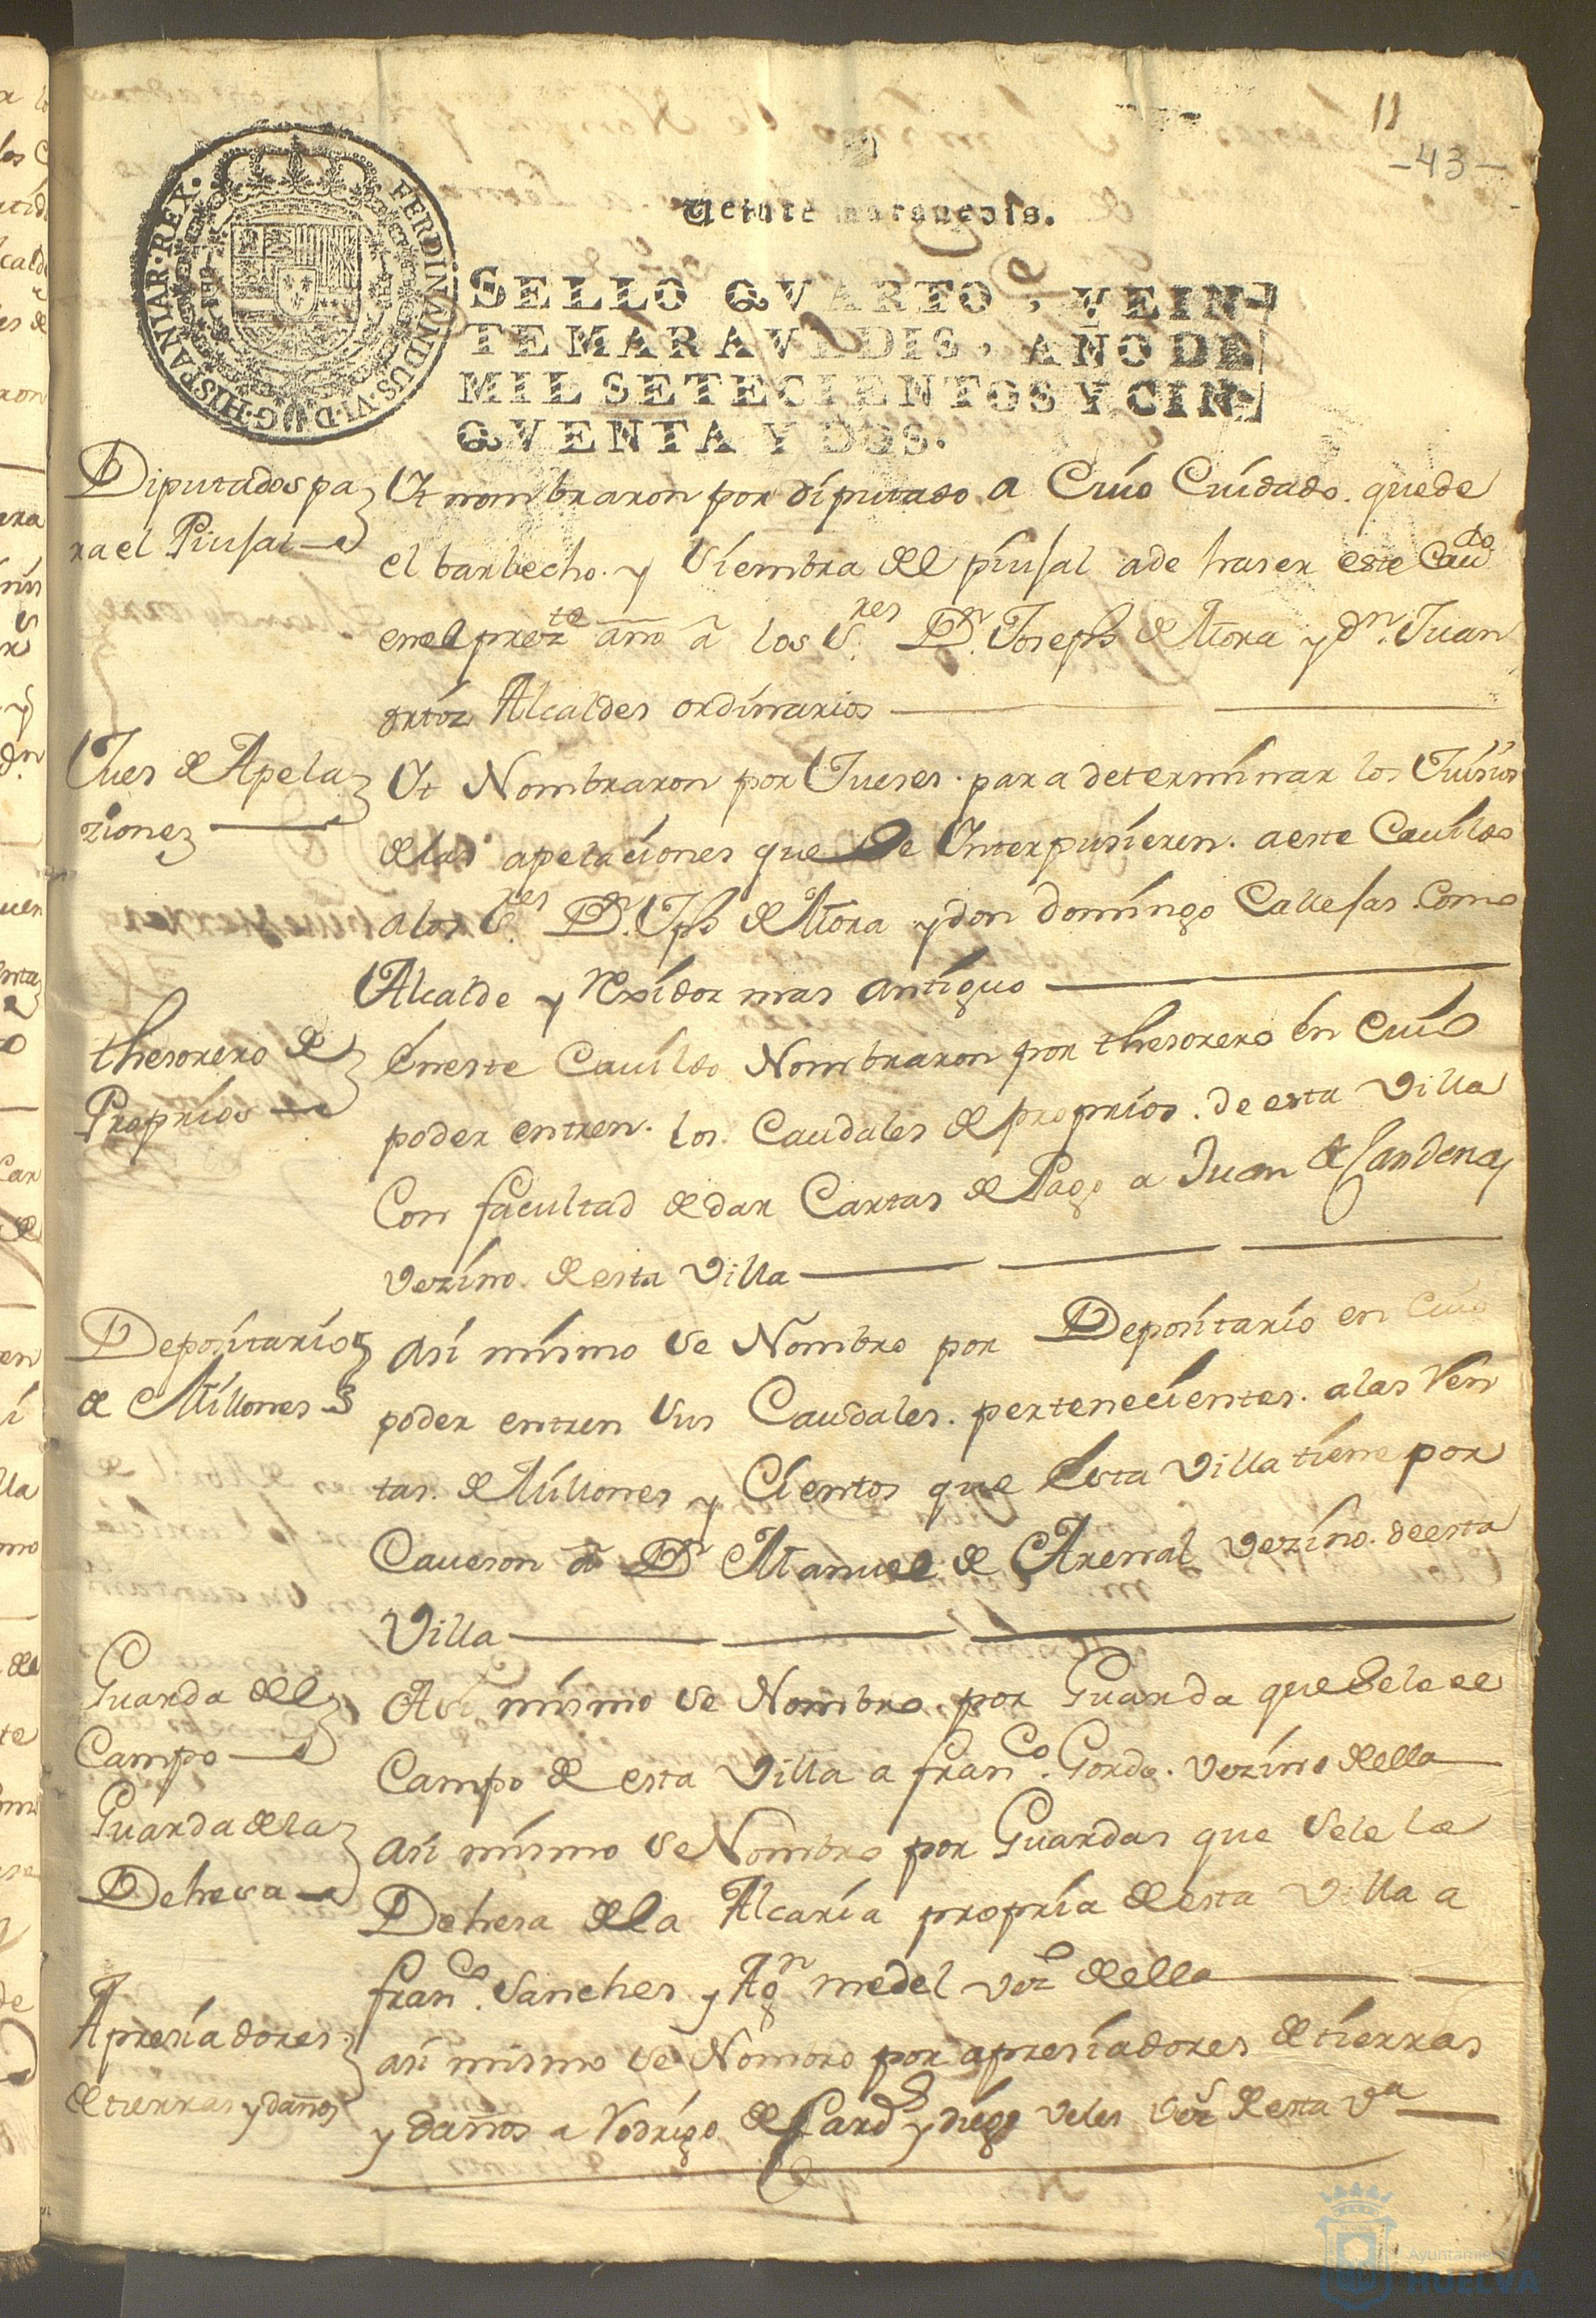 11
-43-
Veinte maravedis.
HISPANIAR·REX· FERDINANDUS·VI·D·G·
SELLO QVARTO, VEIN-
TE MARAVEDIS, AÑO DE
MIL SETECIENTOS Y CIN-
QVENTA Y DOS.
Diputados pa
ra el Piusar
Yt nombraron por diputado a Cuio Cuidado quede
el barbecho y Siembra del piusal ade haser este Caudo
en el prezte año a los Sres Dn Joseph de Mora y dn Juan
ortiz Alcaldes ordinarios
Jues de Apela
ziones
Yt Nombraron por Jueses para determinar los Juisios
de las apelaciones que se Interpusieren a este Cauildo
a los Sres Dn Jph de Mora y don domingo Callesas Como
Alcalde y rexidor mas antiguo
thesorero de
Proprios
En este Cauildo Nombraron por thesorero en Cuio
poder entren los Caudales de proprios de esta Villa
Con facultad de dar Cartas de Pago a Juan de
vezino de esta Villa
Depositario
de Millones
Asi mismo se Nombro por Depositario en Cuio
poder entren sus Caudales pertenecientes a las Ren
tas de Millones y Cientos que Esta Villa tiene por
Caueson a Dn Manuel de Arenal vezino de esta
Villa
Guarda del
Campo
Asi mismo se Nombro por Guarda que Sele el
Campo de esta Villa a Franco Gordo vezino della
Guarda de la
Dehesa
Asi mismo se Nombro por Guardas que Sele la
Dehesa de la Alcaria propria de esta Villa a
Franco Sanches y Agn medel vez della
Apresiadores
de tierras y daños
asi mismo se Nombro por apresiadores de tierras
y daños a Rodrigo de y diego veles vez de esta Va
Ayuntamiento
HUELVA